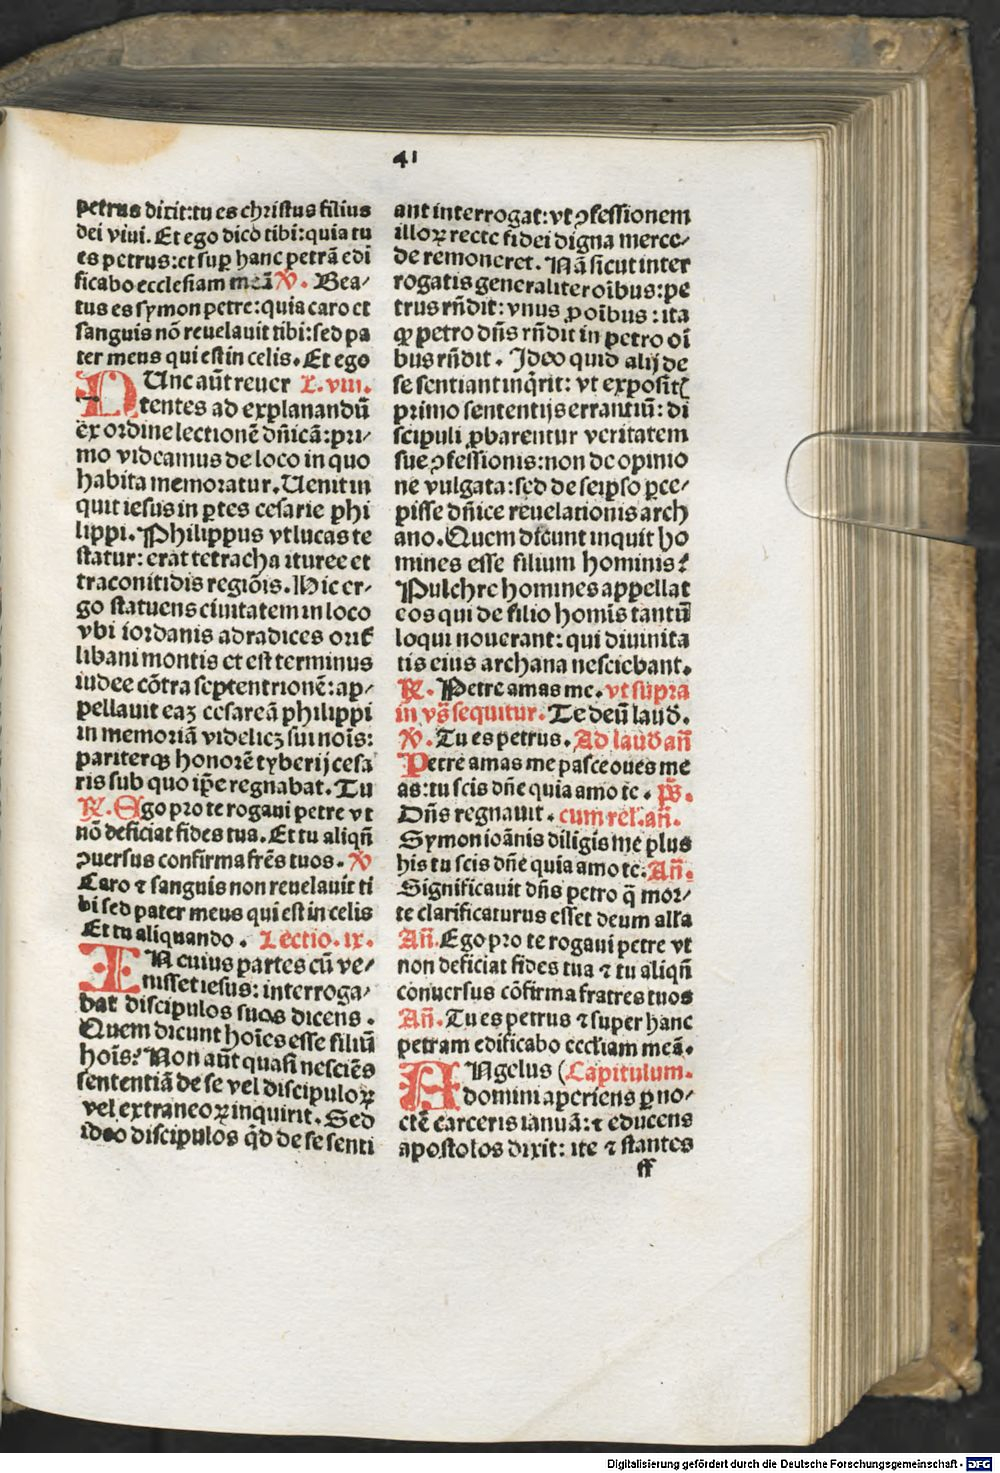 41
petrus dixit:tu es christus filius
dei viui. Et ego dico tibi:quia tu
es petrus:et sup hanc petrã edi
ficabo ecclesiam meã ℣. Bea⸗
tus es symon petre:quia caro et
sanguis nõ reuelauit tibi:sed pa
ter meus qui est in celis. Et ego
NUnc aũt reuer L. viii.
tentes ad explanandũ
ex ordine lectionẽ dñicã:pri⸗
mo videamus de loco in quo
habita memoratur. Uenit in
quit iesus in ꝑtes cesarie phi
lippi. Philippus vt lucas te
statur: erat tetracha ituree et
traconitidis regiõis. Hic er⸗
go statuens ciuitatem in loco
vbi iordanis ad radices orit᷑
libani montis et est terminus
iudee cõtra septentrionẽ:ap⸗
pellauit eaꝫ cesareã philippi
in memoriã videlicꝫ sui nois:
pariterqꝫ honorẽ tyberij cesa
ris sub quo ip̃e regnabat. Tu
℟. Ego pro te rogaui petre vt
nõ deficiat fides tua. Et tu aliqñ
ꝯuersus confirma frẽs tuos. ℣
Caro ⁊ sanguis non reuelauit ti
bi sed pater meus qui est in celis
Et tu aliquando. Lectio. ix.
IN cuius partes cũ ve⸗
nisset iesus: interroga⸗
bat discipulos suos dicens.
Quem dicunt hoĩes esse filiũ
hoĩs? Non aũt quasi nesciẽs
sententiã de se vel discipuloꝝ
vel extraneoꝝ inquirit. Sed
ideo discipulos q̃d de se senti
ant interrogat:vt ꝯfessionem
illoꝝ recte fidei digna merce⸗
de remoneret. Nã sicut inter
rogatis generaliter oĩbus:pe
trus rñdit: vnus ꝓ oĩbus : ita
qꝫ petro dñs rñdit in petro oĩ
bus rñdit. Ideo quid alij de
se sentiant inq̃rit: vt exposit᷑
primo sententijs errantiũ: di
scipuli ꝓbarentur veritatem
sue ꝯfessionis:non de opinio
ne vulgata:sed de seipso ꝑce⸗
pisse dñice reuelationis arch
ano. Quem dicunt inquit ho
mines esse filium hominis?
Pulchre homines appellat
eos qui de filio homĩs tantũ
loqui nouerant: qui diuinita
tis eius archana nesciebant.
℟. Petre amas me. vt supra
in vg̃ sequitur. Te deũ laud̃.
℣. Tu es petrus. Ad laud añ
Petre amas me pasce oues me
as:tu scis dñe quia amo te. p̃s.
Dñs regnauit. cum rel. añ.
Symon ioãnis diligis me plus
his tu scis dñe quia amo te. Añ.
Significauit dñs petro q̃ mor⸗
te clarificaturus esset deum alla
Añ. Ego pro te rogaui petre vt
non deficiat fides tua ⁊ tu aliqñ
conuersus cõfirma fratres tuos
Añ. Tu es petrus ⁊ super hanc
petram edificabo eccliam meã.
ANgelus (Capitulum.
domini aperiens ꝑ no⸗
ctẽ carceris ianuã: ⁊ educens
apostolos dixit: ite ⁊ stantes
ff
Digitalisierung gefördert durch die Deutsche Forschungsgemeinschaft - DFG